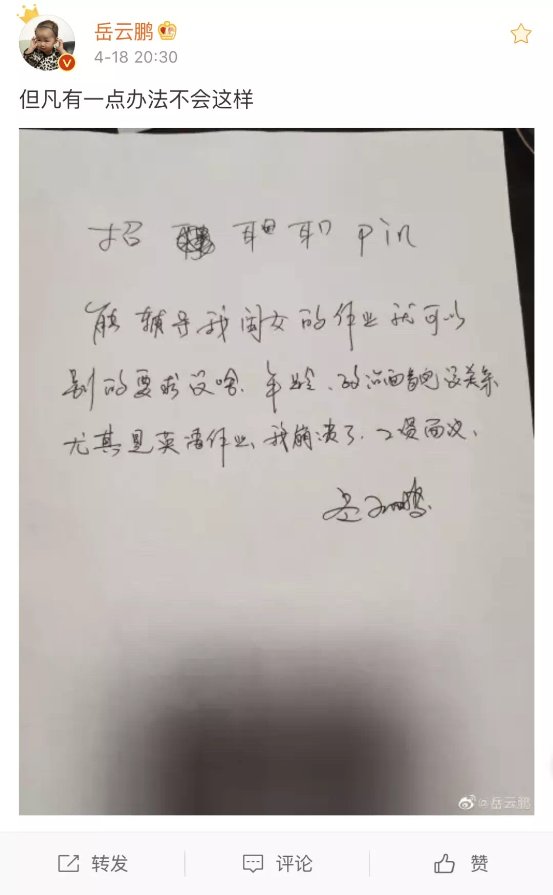 岳云鹏
4-18 20:30
但凡有一点办法不会这样
招 职 职 pin
能辅导我闺女的作业就可以
别的要求没啥.年龄、政治面貌没关系
尤其是英语作业、我崩溃了.工资面议、
岳云鹏
@岳云鹏
转发
评论
赞